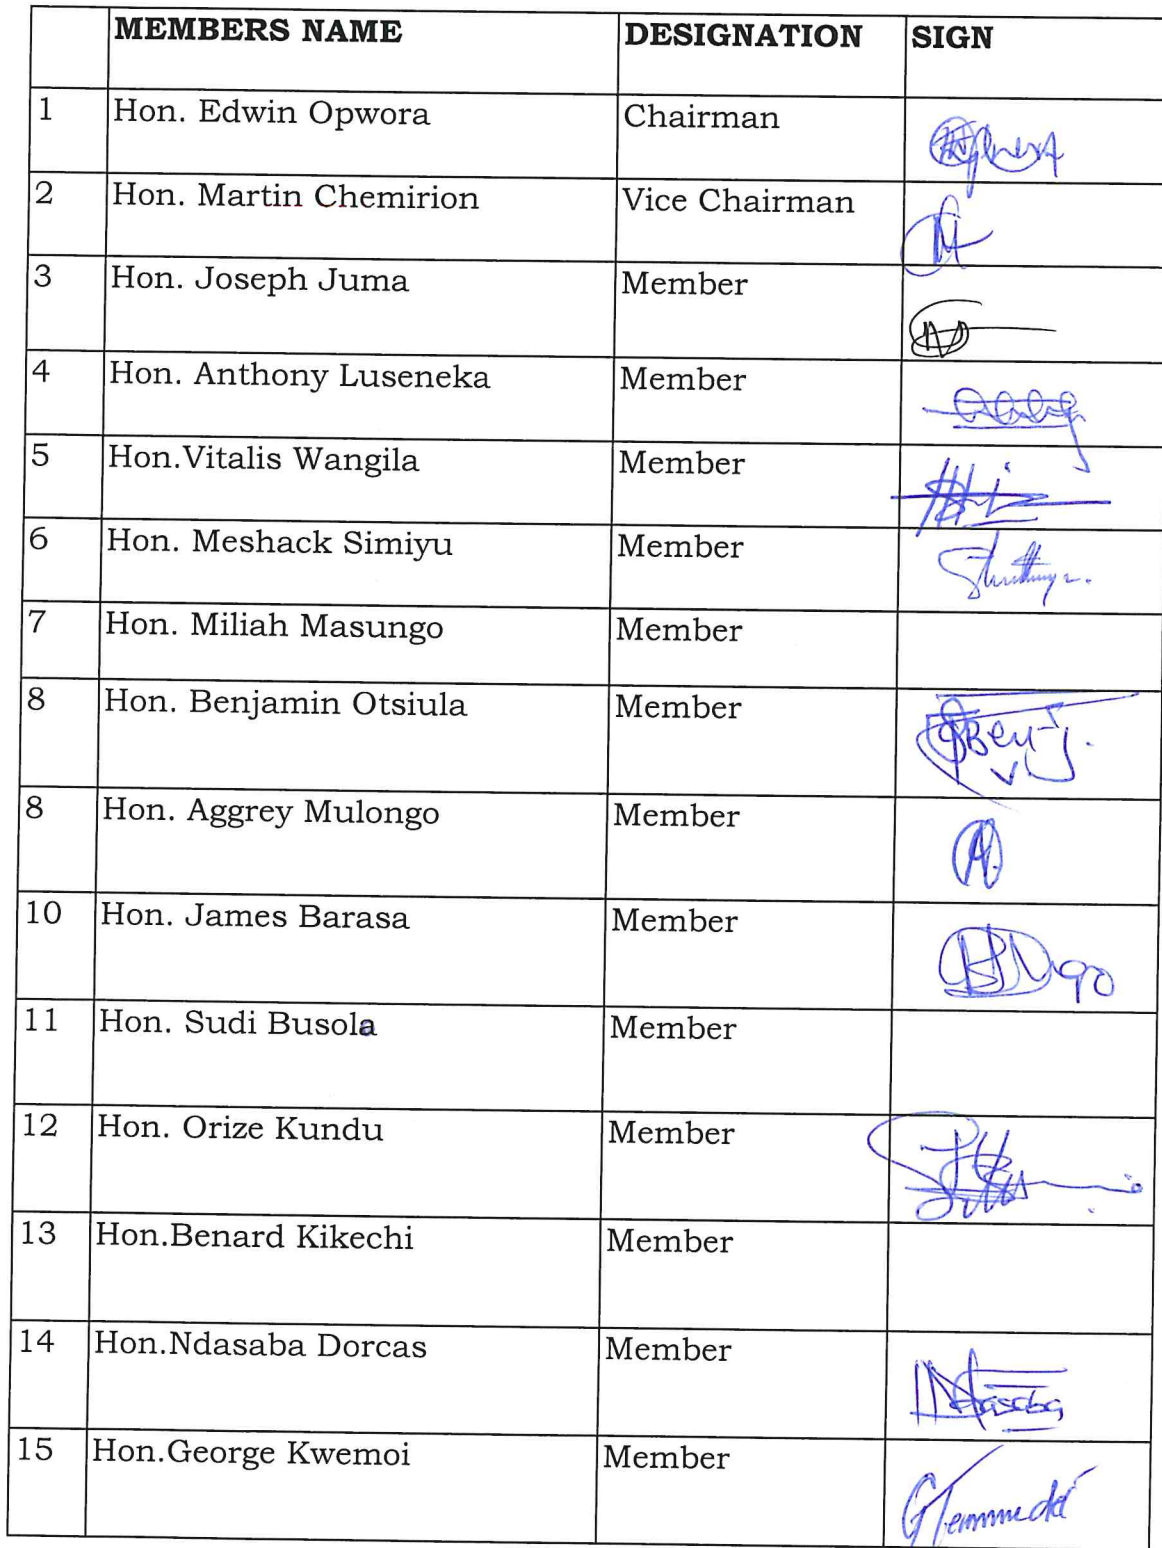 MEMBERS NAME DESIGNATION SIGN
1 Hon. Edwin Opwora Chairman
2 Hon. Martin Chemirion Vice Chairman
3 Hon. Joseph Juma Member
4 Hon. Anthony Luseneka Member
5 Hon.Vitalis Wangila Member
6 Hon. Meshack Simiyu Member
7 Hon. Miliah Masungo Member
8 Hon. Benjamin Otsiula Member
8 Hon. Aggrey Mulongo Member
10 Hon. James Barasa Member
11 Hon. Sudi Busola Member
12 Hon. Orize Kundu Member
13 Hon.Benard Kikechi Member
14 Hon.Ndasaba Dorcas Member
15 Hon.George Kwemoi Member